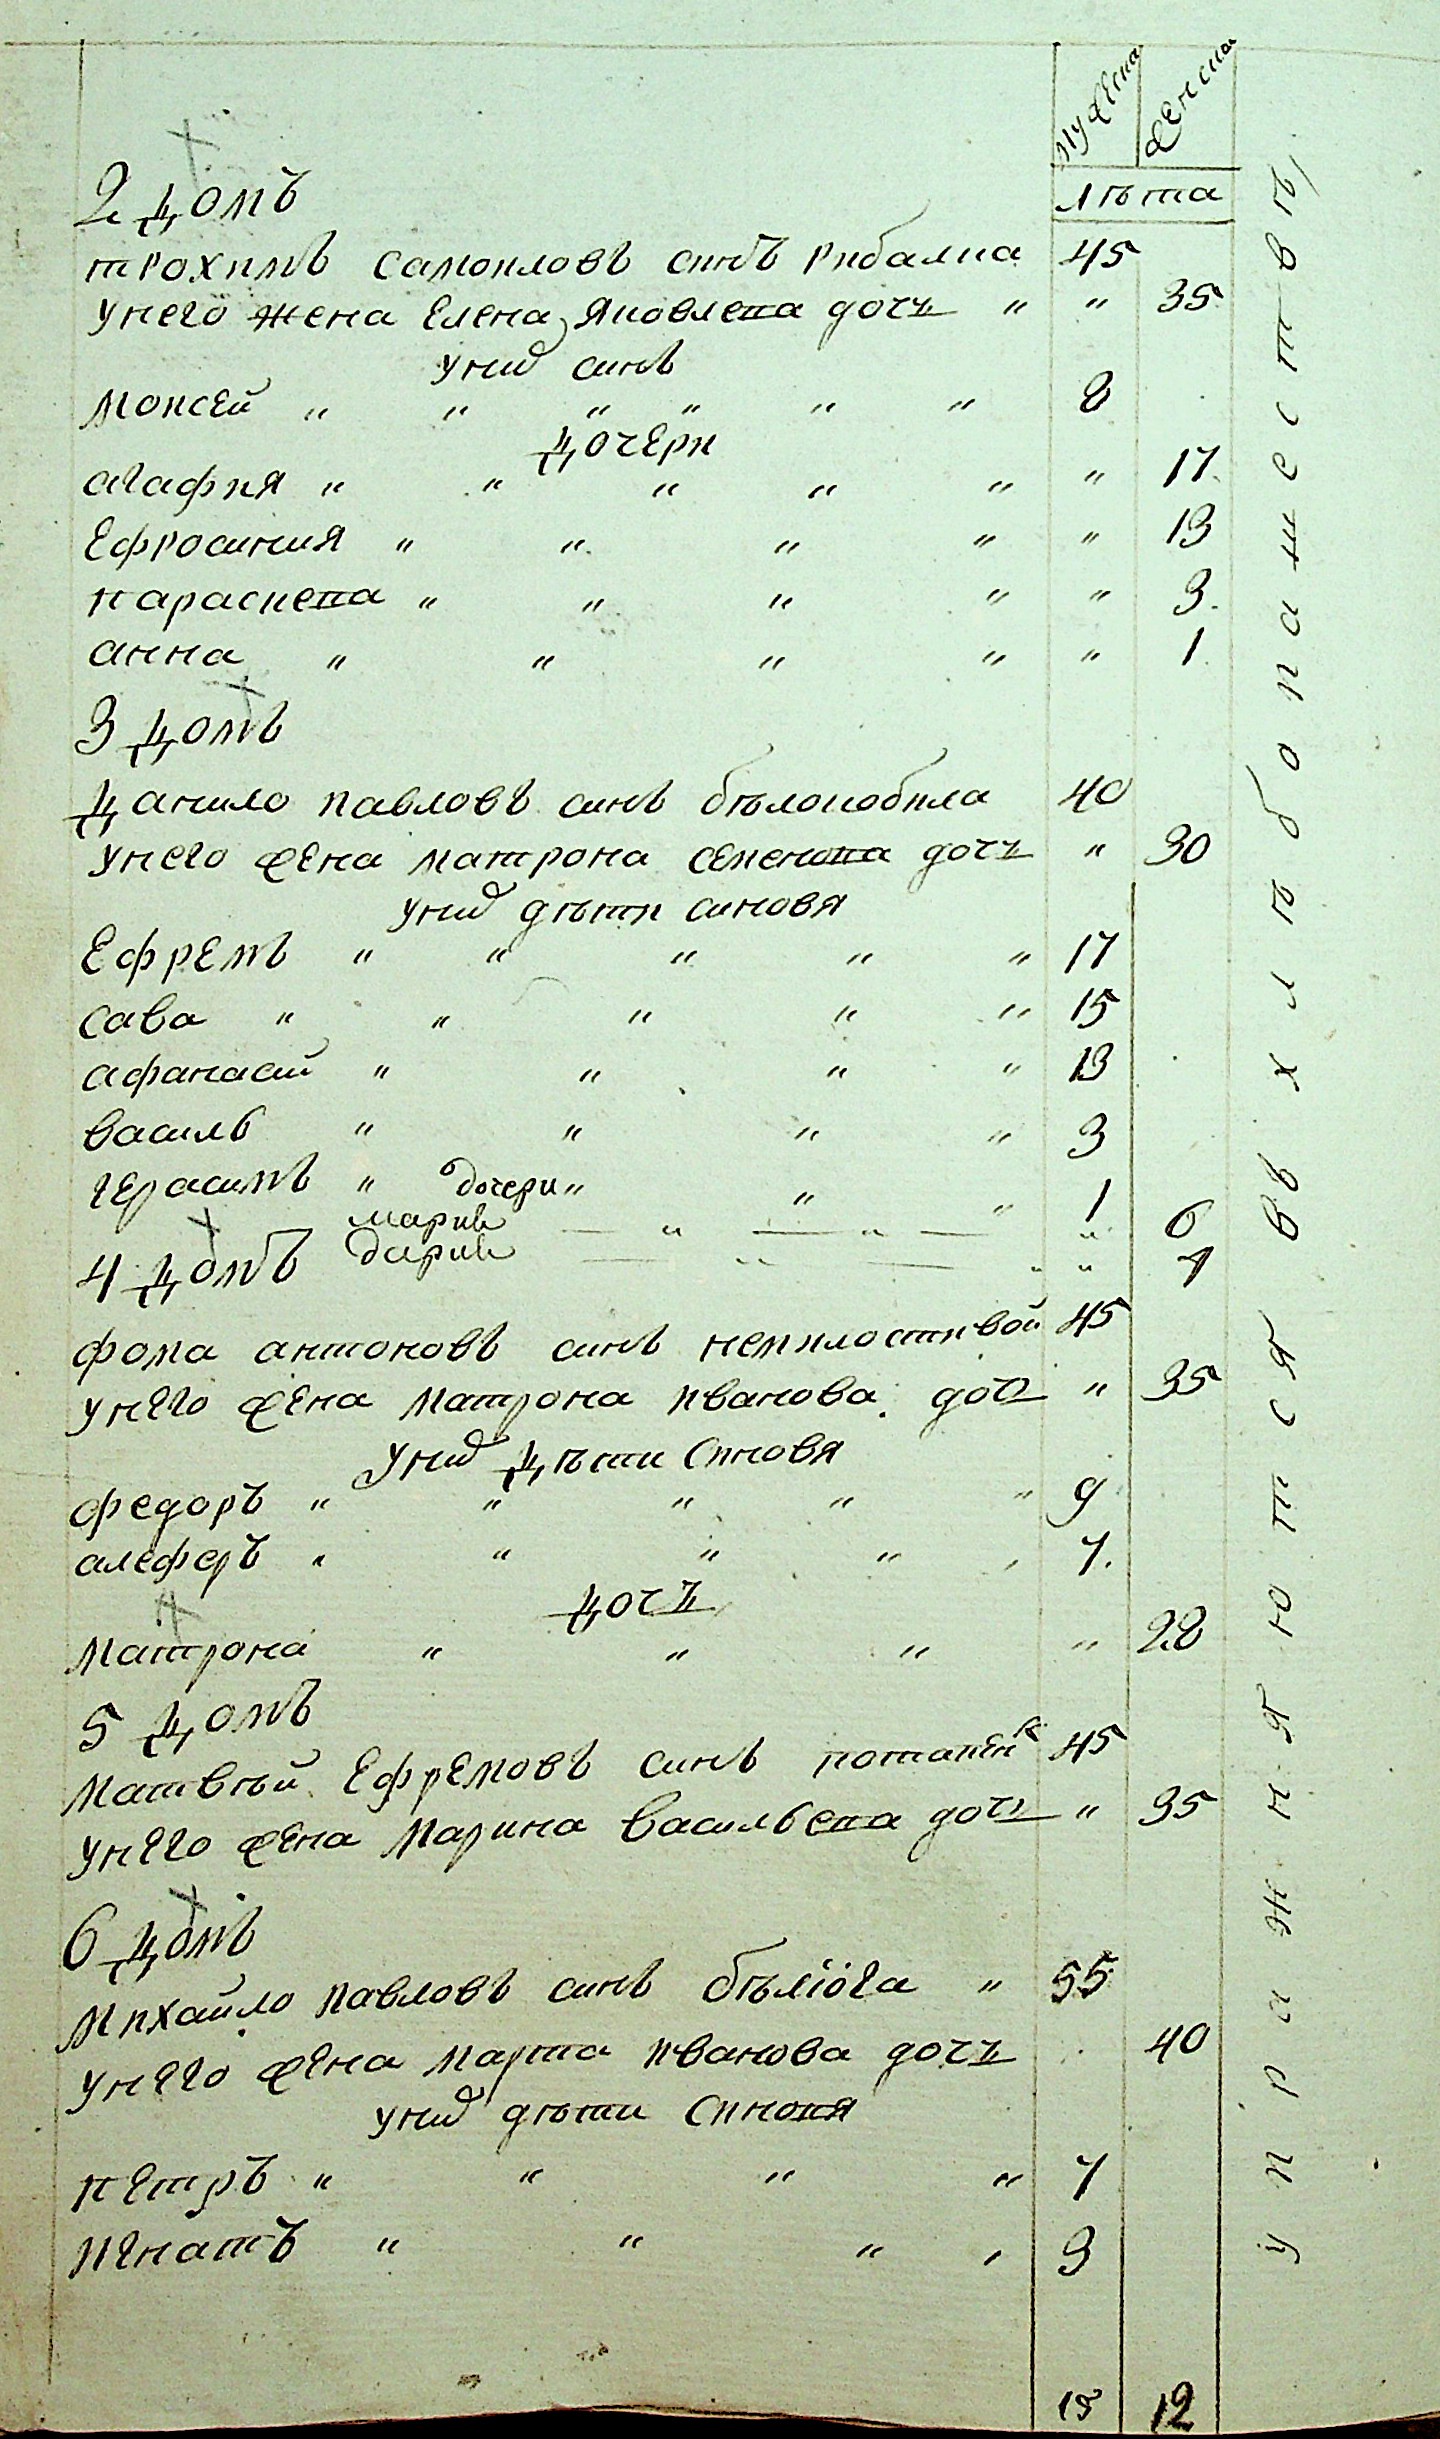 мужеска женска
лѣта
2 домъ
трохимъ самоиловъ синъ рибалка 45
унего жена Елена Яковлева дочь " " 35
уних синъ
Моисей " " " " " " 8
дочери
агафия " " " " " " 17
Ефросиния " " " " " 13
параскева " " " " " 3
анна " " " " " 1
3 домъ
данило павловъ синъ бѣлокобила 40
унего жена матрона семенова дочь " 30
уних дѣти синовя
Ефремъ " " " " " 17
сава " " " " " 15
афанасий " " " " 13
василь " " " " 3
герасимъ " дочери " " " 1
мария " " " 6
4 домъ дария " " " 1
фома антоновъ синъ немилостивой 45
унего жена матрона иванова дочь " 35
уних дѣти синовя
федоръ " " " " " 9
алеферъ " " " " " 7
дочь
матрона " " " " 22
5 домъ
матвѣй Ефремовъ синъ потапенк 45
унего жена марина васильева дочь " 35
6 домъ
михайло павловъ синъ бѣлїога " 55
унего жена марта иванова дочь 40
уних дѣти синовя
петръ " " " " 7
игнатъ " " " " 3
15 12
упражняются въ хлѣбопашествѣ